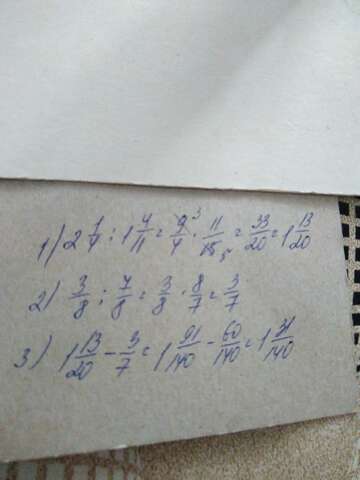 1) 2 1/4 : 1 4/11 = 9³/4 · 11/15₅ = 33/20 = 1 13/20
2) 3/8 : 7/8 = 3/8 · 8/7 = 3/7
3) 1 13/20 - 3/7 = 1 91/140 - 60/140 = 1 31/140